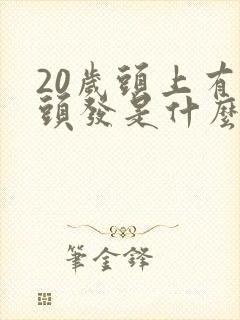 20歲頭上有
頭發是什麼
筆金鋒